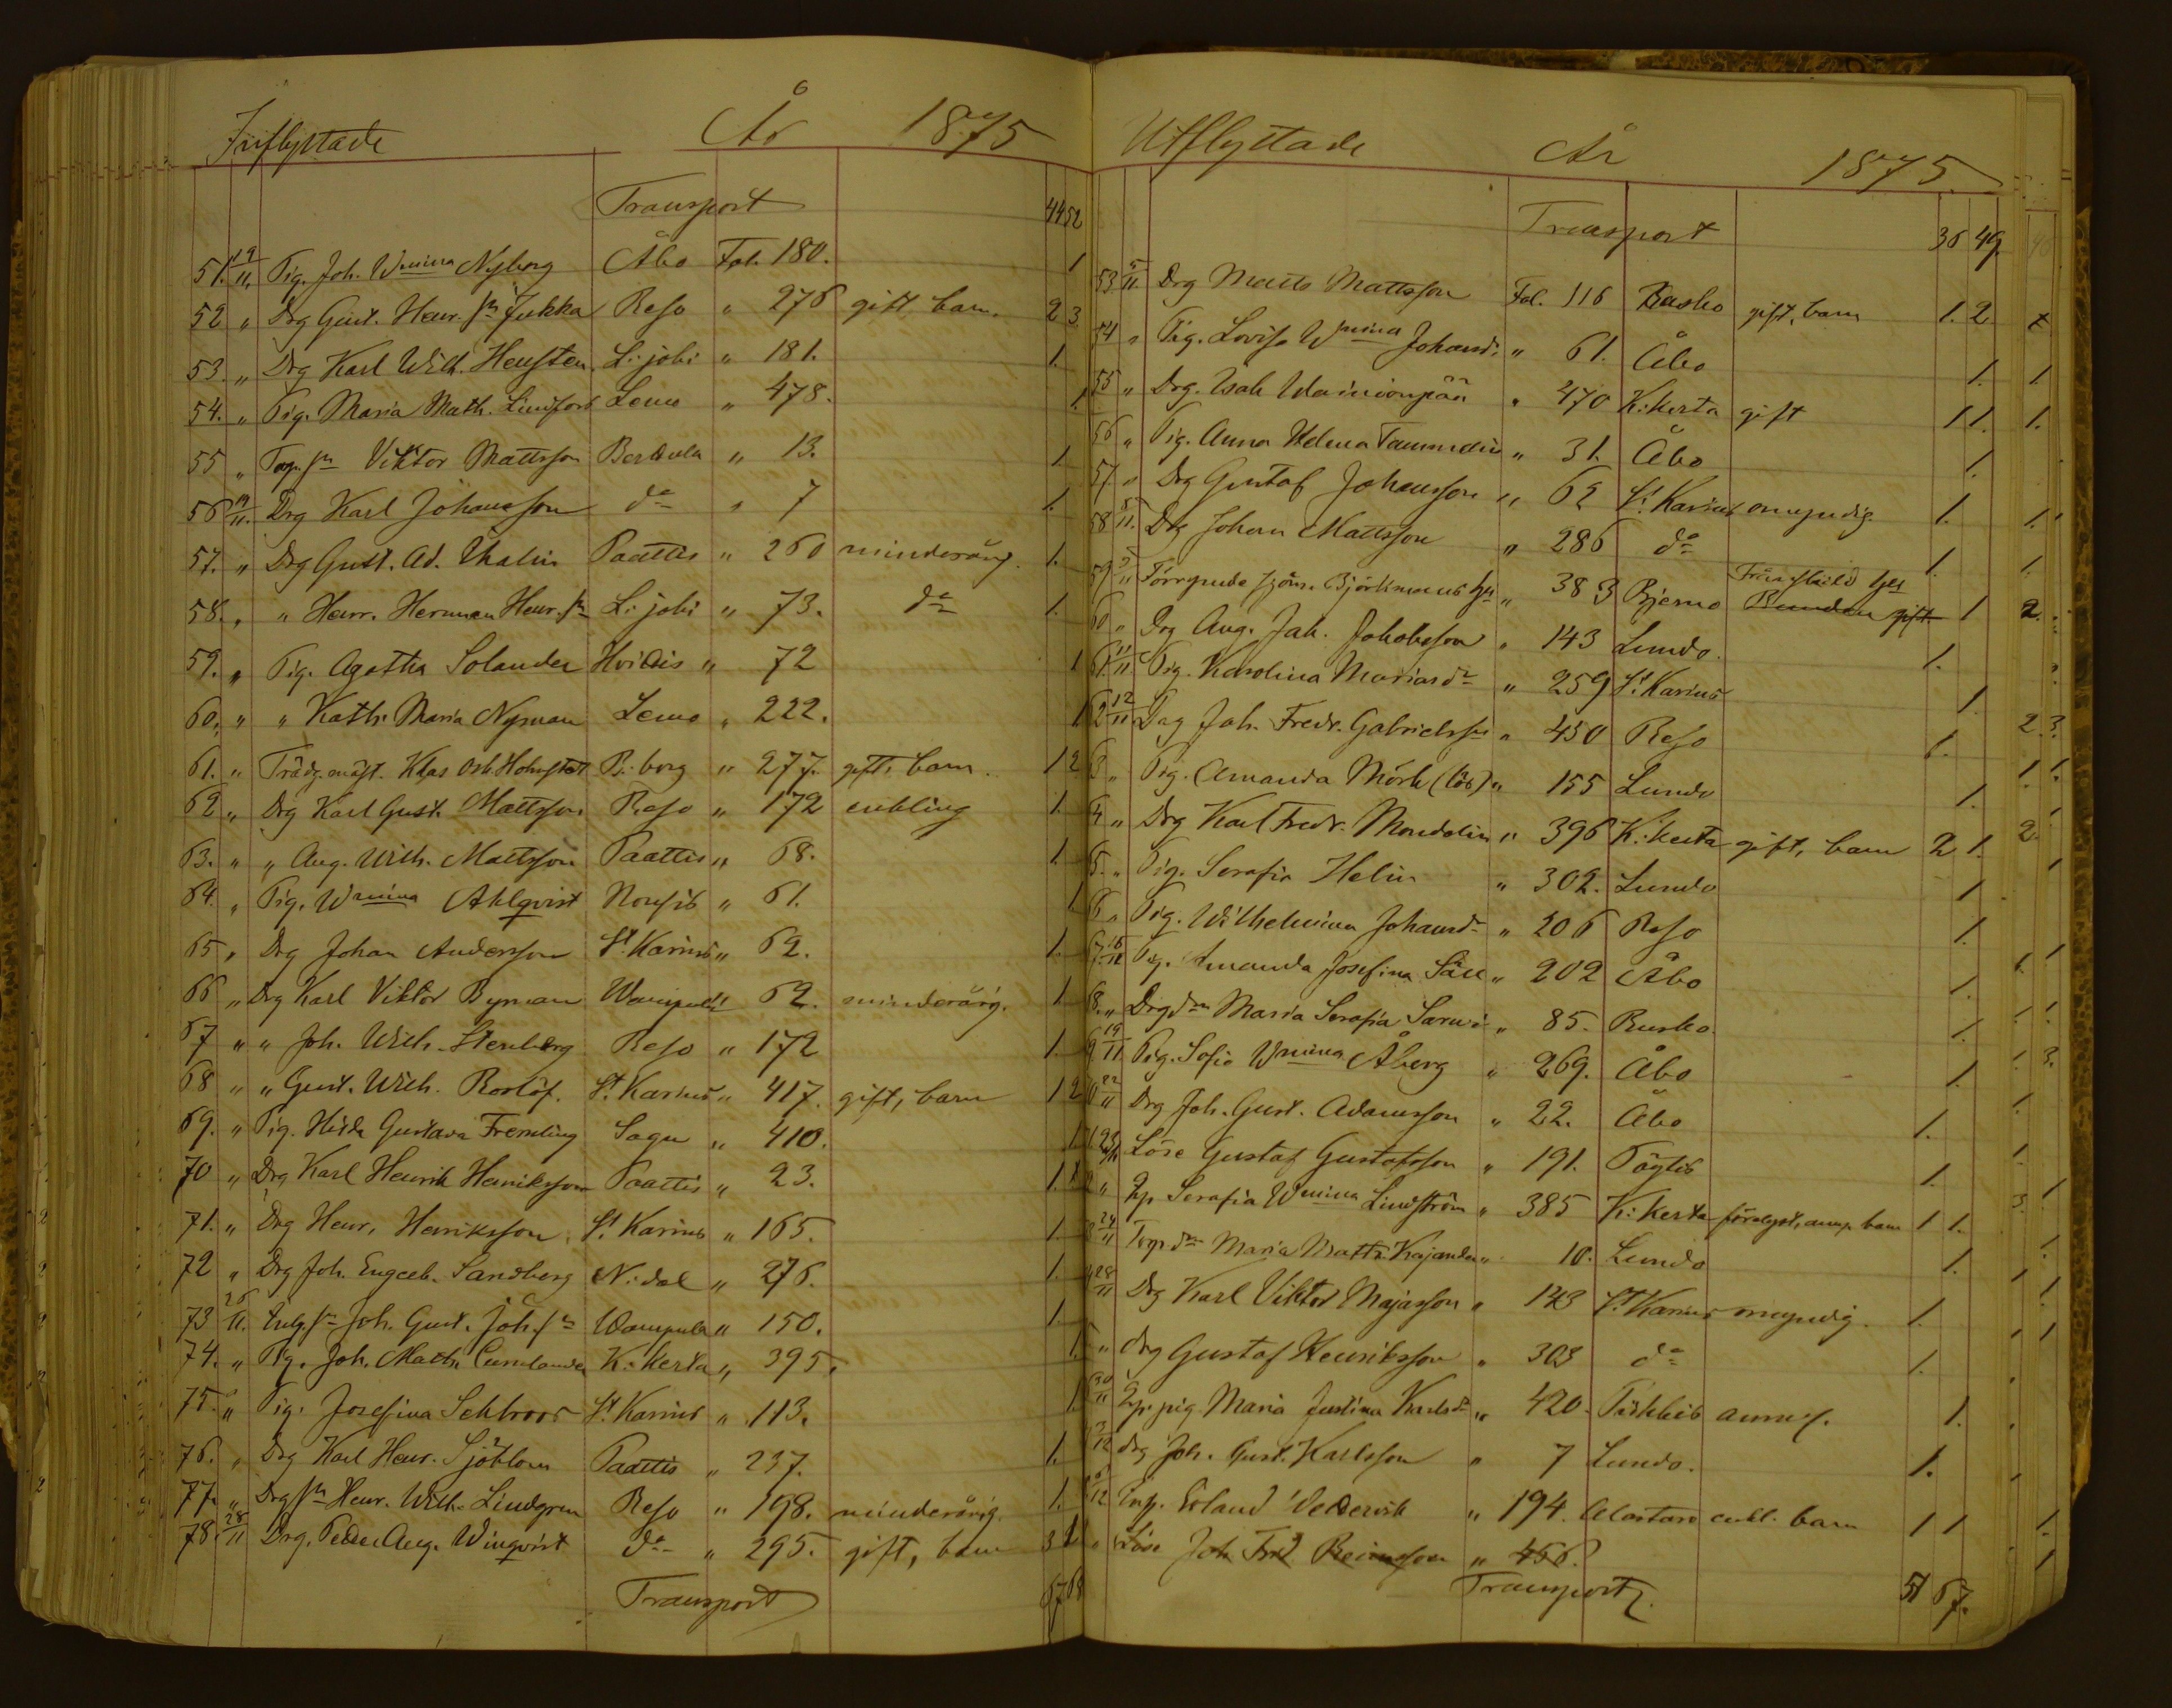 Inflyttade År 1875
Transport 44 52
51. 19/11. Pig. Joh. Wmina Nyberg Åbo Fol. 180. 1
52 " Drg Gust. Henr. sn Jukka Reso " 276 gift, barn. 2 3.
53. " Drg Karl Wilh. Hensten L:joki " 181. 1.
54. " Pig. Maria Math. Lindfors Lemo " 478. 1.
55 " Torp.sn Viktor Mattsson " 13. 1.
56 19/11. Drg Karl Johansson do " 7 1.
57. " Drg Gust. Ad. Thalin Paattis " 260 minderårig. 1.
58. " " Henr. Herman Henr.sn L:joki " 73. do 1.
59. " Pig. Agatha Solander Hvidis " 72 1
60. " " Kath. Maria Nyman Lemo " 222. 1
61. " Trädg.mäst. Klas Osk. Holmstet B:borg " 277. gift, barn. 1 2
62 " Drg Karl Gust. Mattsson Reso " 172 enkling 1.
63. " " Aug. Wilh. Mattsson Paattis " 68. 1.
64. " Pig. Wmina Ahlqvist Nousis " 61. 1
65 " Drg Johan Andersson St Karins " 62. 1.
66 " Drg Karl Viktor Byman Wampula 62. minderårig. 1
67 " " Joh. Wilh. Stenberg Reso " 172 1.
68 " " Gust. Wilh. Roslöf. St Karins " 417. gift, barn 1 2
69. " Pig. Hilda Gustava Fremling Sagu " 410. 1
70 " Drg Karl Henrik Henriksson Paattis " 23. 1.
71. " Drg Henr. Henriksson St Karins " 165. 1.
72 " Drg Joh. Engelb. Sandberg N:dal " 276. 1.
73 26/11. Inhg.sn Joh. Gust. Joh.sn Wampula " 150. 1.
74. " Pig. Joh. Math. K:kerta " 395. 1.
75. " Pig. Josefina Sehlroos St Karins " 113. 1.
76. " Drg Karl Henr. Sjöblom Paattis " 237. 1.
77. " Drg sn Henr. Wilh. Lindgren Reso " 198. minderårig. 1.
78. 28/11 Drg. Peder Aug. Winqvist do " 295. gift, barn 3 1
Transport 67 68
Utflyttade År 1875.
Transport 36 49.
53 5/11. Drg Matts Mattsson Fol. 116 Rusko gift, barn 1. 2.
54 " Pig. Lovisa Wmina Johansdr " 61. Åbo 1.
55 " Drg. Isak Wainionpää " 470 K:kerta gift 1 1.
56 " Pig. Anna Helena Tammelin " 31. Åbo 1.
57 " Drg Gustaf Johansson " 62 St Karins omyndig. 1.
58 5/11. Drg Johan Mattsson " 286 do 1.
59 5/11 383 Bjerno Frånskild 1
60 " Drg Aug. Jak. Jakobsson " 143 Lundo. 1.
61 11/11 Pig. Karolina Mariasdr " 259 St Karins 1.
62 12/11 Drg Joh. Fredr. Gabrielsson " 450 Reso 1.
63 " Pig. Amanda Mörk (lös) " 155 Lundo 1.
64 " Drg Karl Fredr. Mondolin " 396 K:kerta gift, barn 2 1.
65. " Pig. Serafia Helin " 302. Lundo 1
66 " Pig. Wilhelmina Johansdr " 206 Reso 1.
67. Pig. Amanda Josefina " 202 Åbo 1.
68. " Drg dtr Maria Serafia " 85. Rusko 1.
69 19/11 Pig. Sofia Wmina Åberg " 269. Åbo 1.
70 22/11 Drg Joh. Gust. Adamsson " 22. Åbo 1.
71. 23/11 Löse Gustaf Gustafsson " 191. Töfsis 1.
72 " Serafia Wmina Lindström " 385 K:kerta barn 1 1.
73 24/11 Torp dtr Maria Math. Kajander " 10. Lundo 1.
74 28/11 Drg Karl Viktor Majasson " 143 St Karins omyndig. 1.
75 " Drg Gustaf Henriksson " 303 do 1.
76 30/11 pig. Maria Justina Karlsdr " 420. 1.
3/12 Drg Joh. Gust. Karlsson " 7 Lundo. 1.
Erland " 194. Alastaro enkl. barn 1 1
" Löse Joh. Fred. " 456.
Transport 51 67.